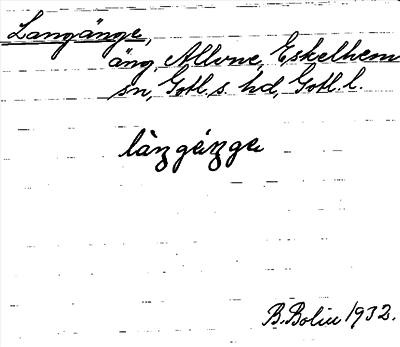 Langänge,
äng, Allvne, Eskelhem
sn, Gotl. s. hd, Gotl. l.
B. Bolin 1932.